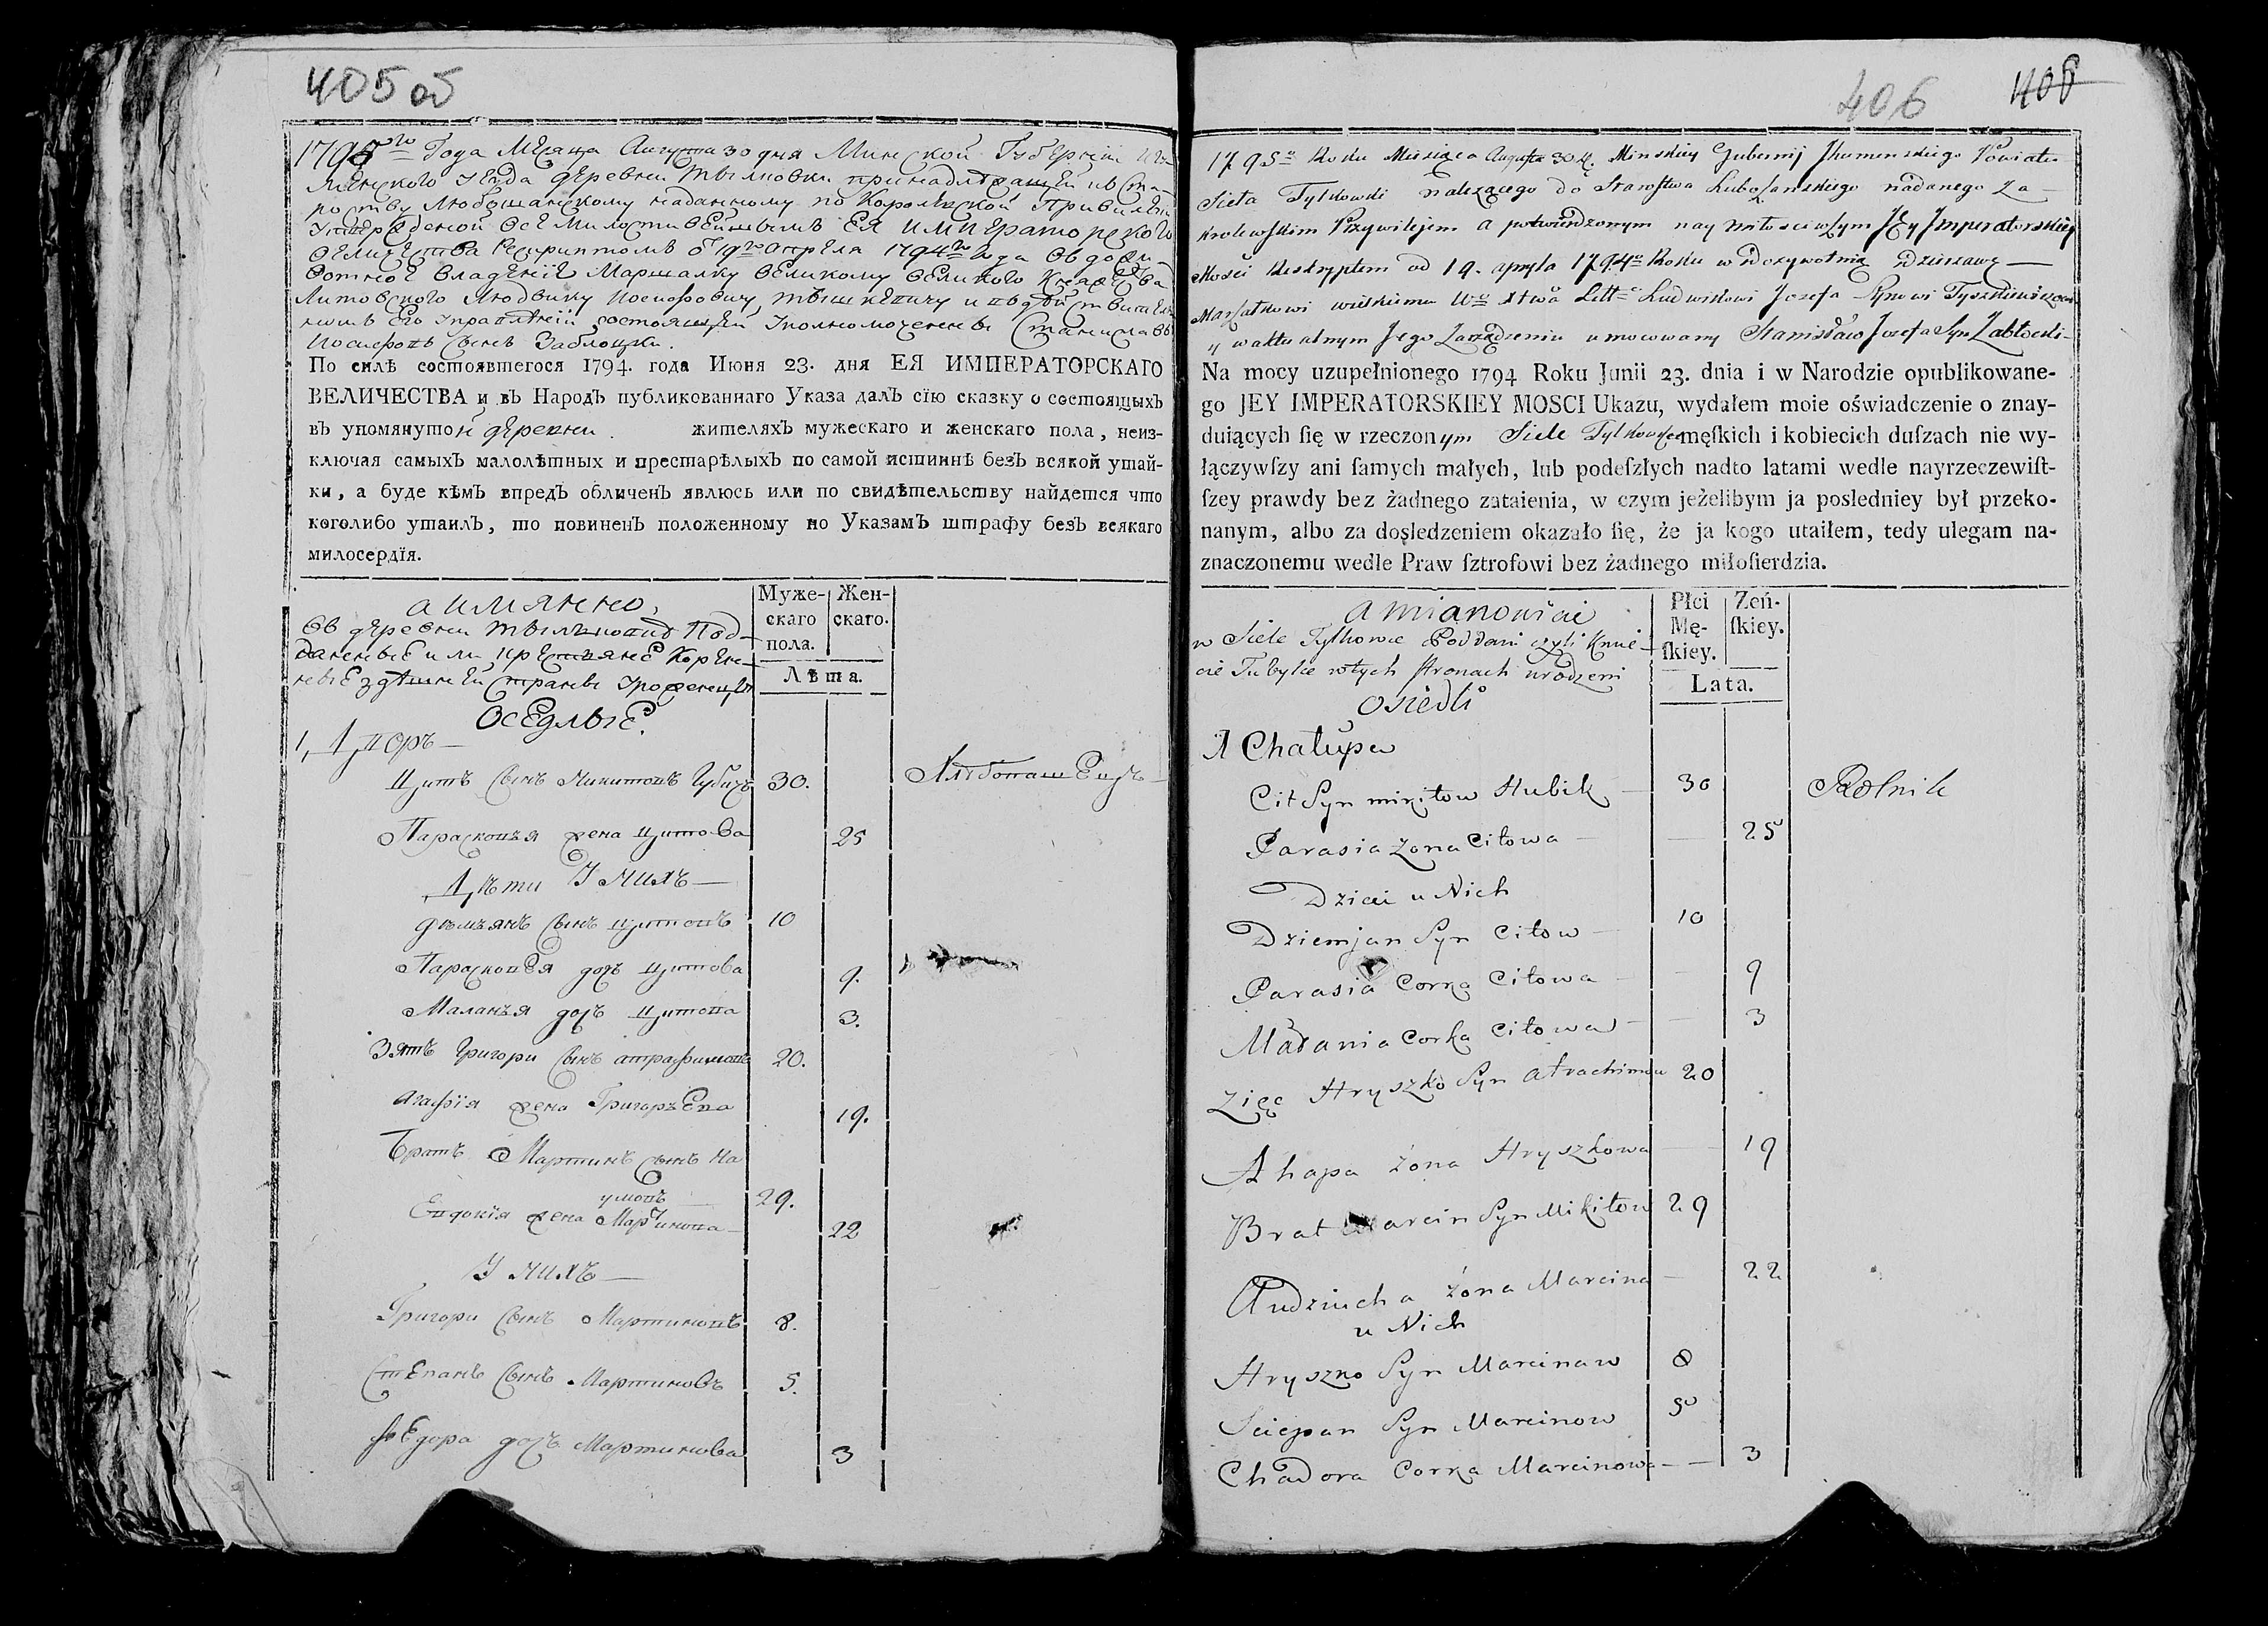 405 об
1795го Года Месяца Августа 30 дня Минской Губернии Игу
менского Уезда деревни Тылковки принадлежащей къ Ста-
роству Любошанскому наданному по Королевской Привилегии
Утвержденной Всемилостивейшымъ ЕЯ Императорского
Величества Рескриптомъ от 19го Апреля 1794го года въ дожи-
вотное владение Маршалку Великому Великого Княжества
Литовского Людвику Иосифовичу Тышкевичу и в
его управлении состоящей Уполномоченны Станиславъ
Иосифовъ сынъ Заблоцки.
По силѣ состоявшегося 1794. года Июня 23. дня ЕЯ ИМПЕРАТОРСКАГО
ВЕЛИЧЕСТВА и въ Народъ публикованнаго Указа далъ сїю сказку о состоящыхъ
въ упомянутой деревни жителяхъ мужескаго и женскаго пола, неиз-
ключая самыхъ малолѣтныхъ и престарѣлыхъ по самой истиннѣ безъ всякой утай-
ки, а буде кѣмъ впредъ обличенъ явлюсь или по свидѣтельству найдется что
коголибо утаилъ, то повиненъ положенному по Указамъ штрафу безъ всякаго
милосердїя.
а имянно,
Въ деревни Тылковке Под-
данные или крестьяне Корен-
ные здѣшней страны уроженцы
Оседлые.
Муже-
скаго
пола.
Жен-
скаго.
Лѣта.
1, Дворъ
Цитъ сынъ Микитовъ Губикъ 30. Хлѣбопашецъ
Парасковья жена Цитова 25
Дѣти У нихъ
Демьянъ сынъ Цитовъ 10
Парасковея дочь Цитова 9.
Маланья дочь Цитова 3.
Зять Григори сынъ Атрафимовъ 20.
Агафїя жена Григорьева 19.
Братъ Мартинъ сынъ Ма
29.
Евдокїя жена Мартинова 22
У нихъ
Григори сынъ Мартиновъ 8.
Степанъ сынъ Мартиновъ 5.
Федора дочь Мартинова 3
406 406
1795o Roku Miesiąca Augusta 30 d. Minskiey Gubernij Jhumenskiego Powiatu
Sieła Tylkowki nalezącego do Starostwa Lubosanskiego nadanego za
krolewskim Przywilejem a potwierdzonym nay miłosciwszym JEy Jmperatorskiey
Mosci Reskryptem od 19. apryla 1794o Roku w Dozywotnią Dzierzawę
Marszałkowi wielkiemu Wo Xtwa Litt Ludwikowi Jozefa Synowi Tyszkiewiczowi
y w aktualnym Jego Zarządzeniu umocowany Stanisław Jozefa Syn Zabłocki
Na mocy uzupełnionego 1794 Roku Junii 23. dnia i w Narodzie opublikowane-
go JEY IMPERATORSKIEY MOSCI Ukazu, wydałem moie oświadczenie o znay-
duiących ſię w rzeczonym Siele Tylkowce męſkich i kobiecich duſzach nie wy-
łączywſzy ani ſamych małych, lub podeſzłych nadto latami wedle nayrzeczewiſt-
ſzey prawdy bez żadnego zataienia, w czym jeżelibym ja posledniey był przeko-
nanym, albo za dosledzeniem okazało ſię, że ja kogo utaiłem, tedy ulegam na-
znaczonemu wedle Praw ſztrofowi bez żadnego miłoſierdzia.
a mianowicie
w Siele Tylkowce Poddani czyli Kmie-
cie Tubylce w tych stronach urodzeni
Osiedli
Płci
Mę-
ſkiey.
Zeń-
ſkiey.
Lata.
1 Chałupa
Cit Syn mikitow Hubik 30 Rolnik
Parasia zona Citowa 25
Dzieci u Nich
Dziemjan Syn Citow 10
Parasia Corka Citowa 9
Małania Corka Citowa 3
Zięc Hryszko Syn Atrachimow 20
Ahapa żona Hryszkowa 19
Brat Marcin Syn Mikitow 29
Audziucha żona Marcina 22
u Nich
Hryszko Syn Marcinaw 8
Sciepan Syn Marcinow 5
Chadora Corka Marcinowa 3